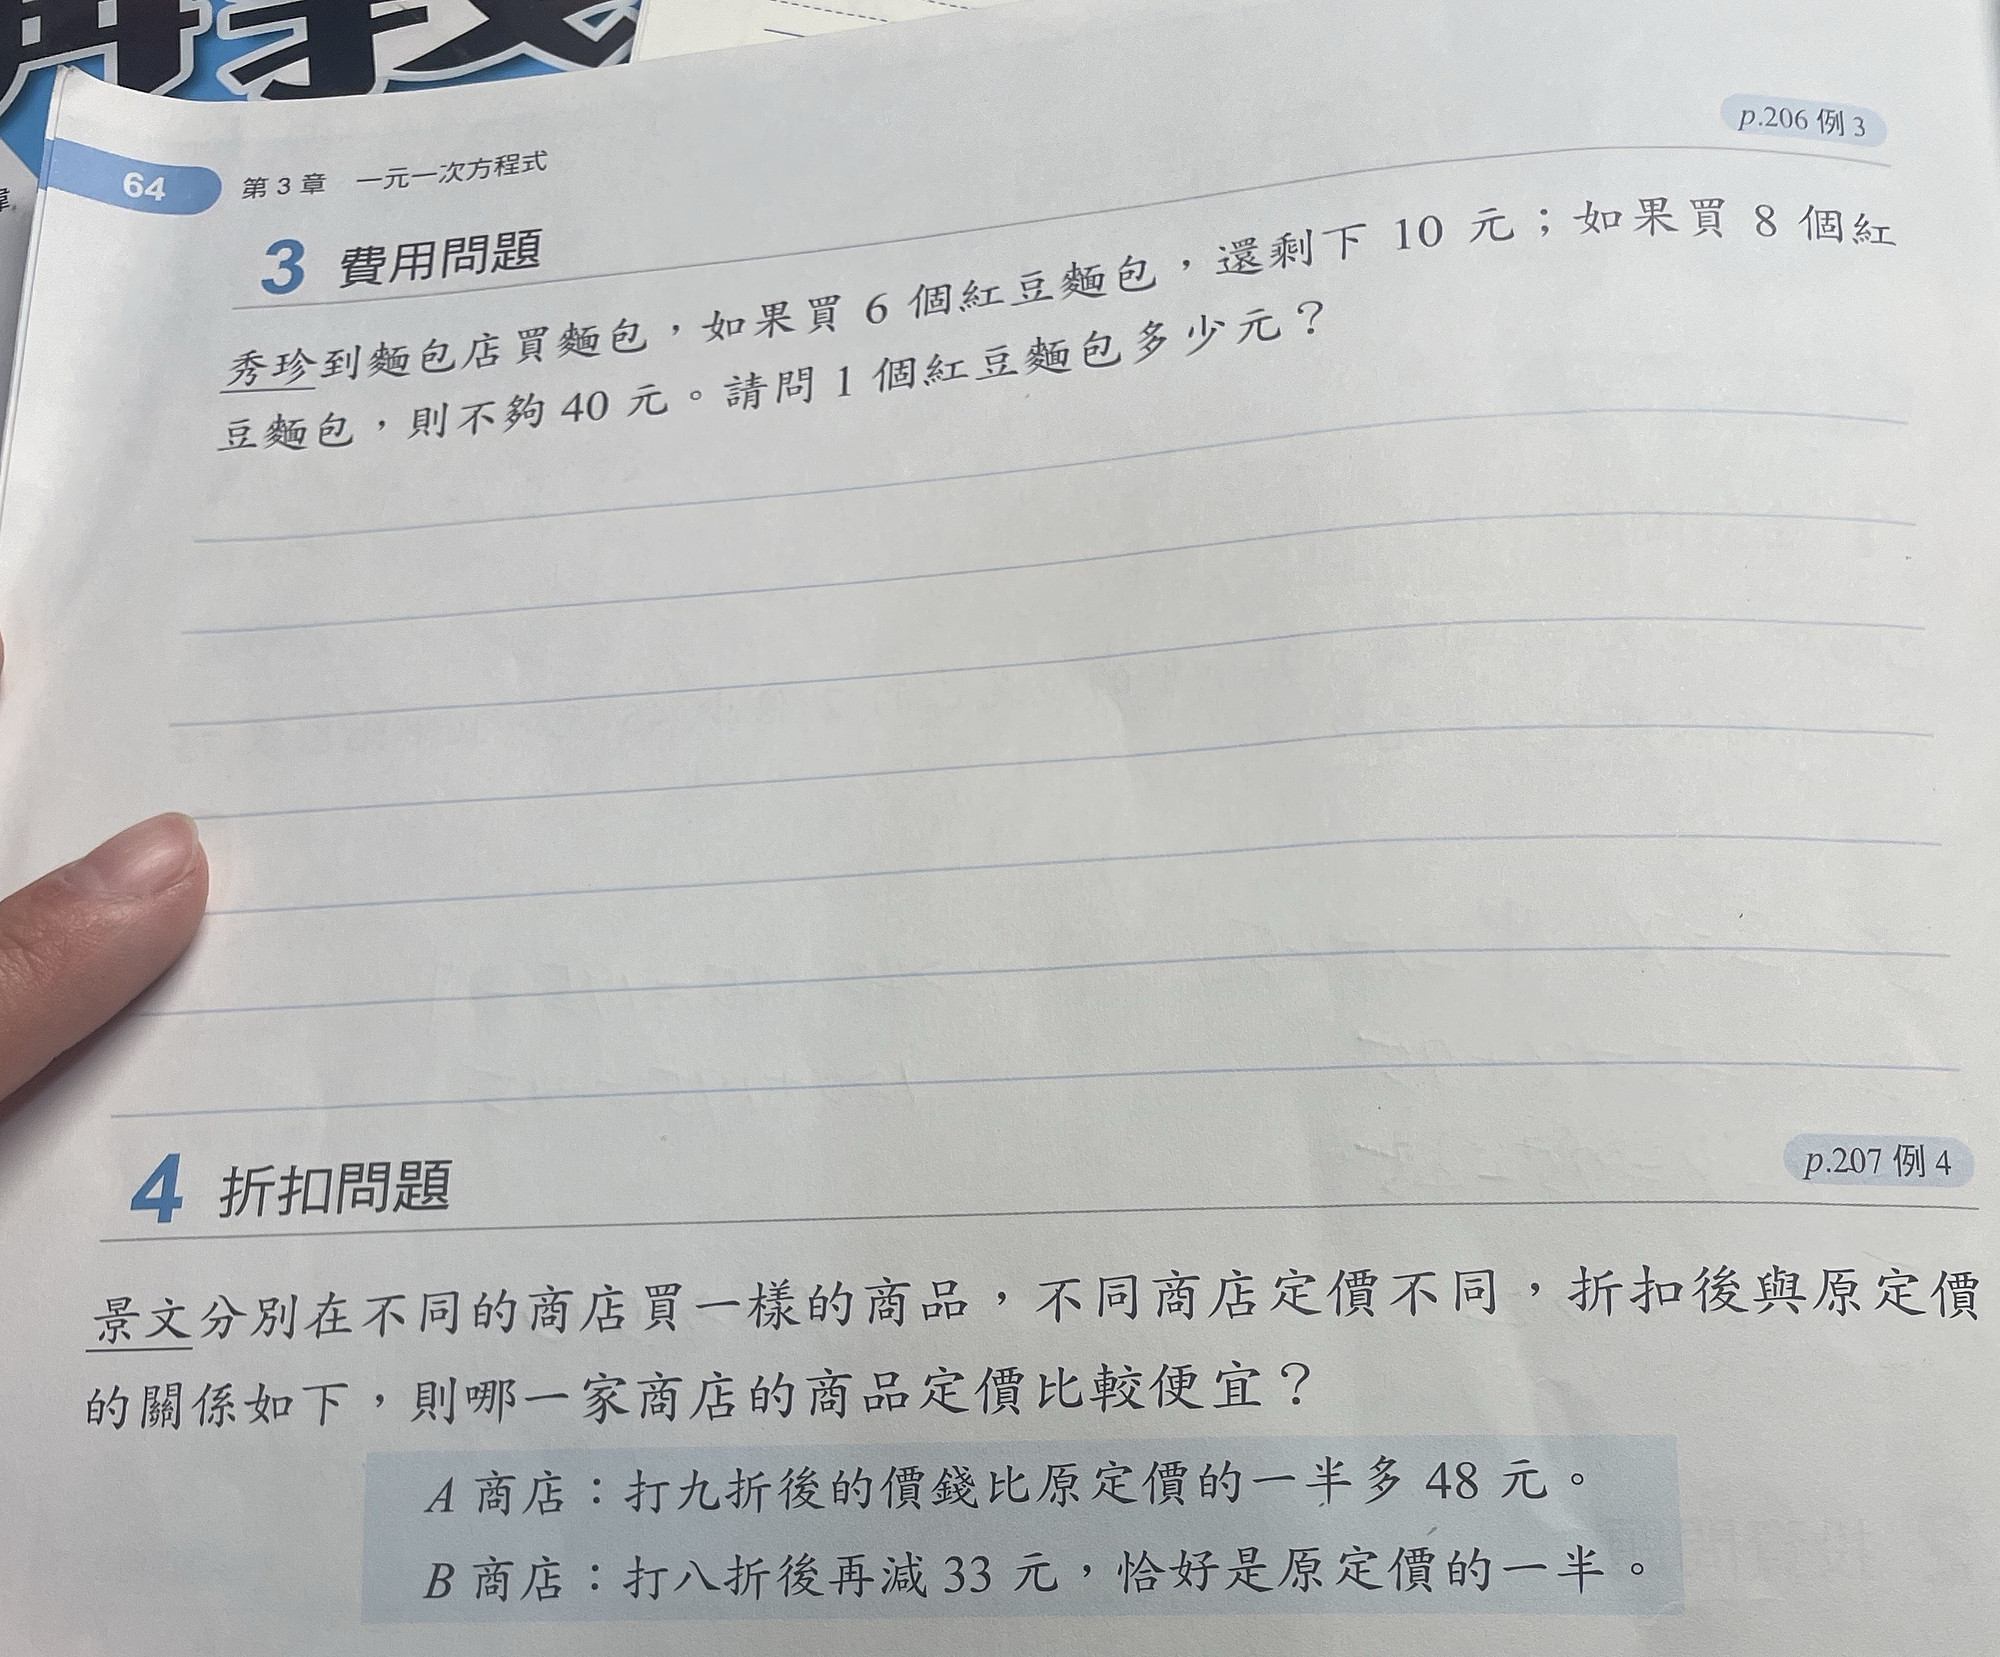 p.206 例 3
64 第 3 章 一元一次方程式
3 費用問題
秀珍到麵包店買麵包，如果買 6 個紅豆麵包，還剩下 10 元；如果買 8 個紅
豆麵包，則不夠 40 元。請問 1 個紅豆麵包多少元？
4 折扣問題
p.207 例 4
景文分別在不同的商店買一樣的商品，不同商店定價不同，折扣後與原定價
的關係如下，則哪一家商店的商品定價比較便宜？
A 商店：打九折後的價錢比原定價的一半多 48 元。
B 商店：打八折後再減 33 元，恰好是原定價的一半。